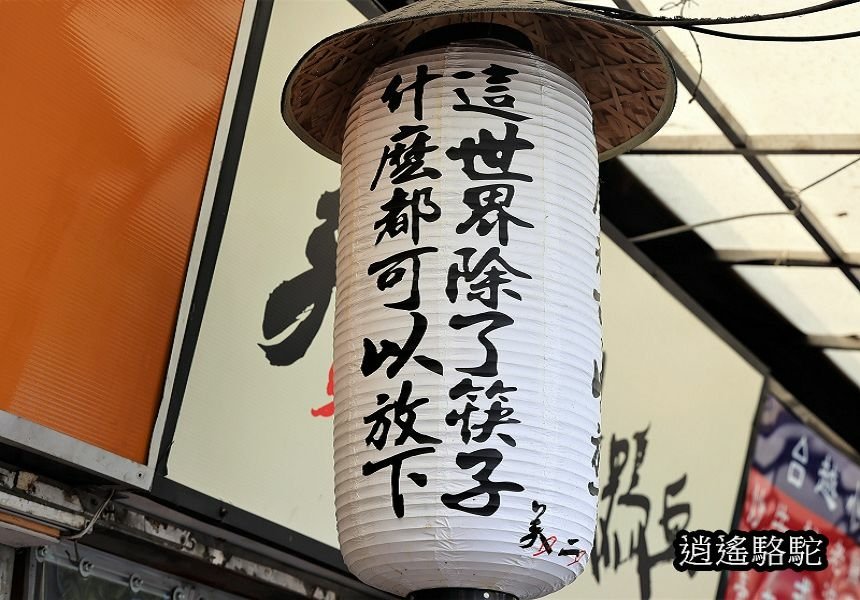 這世界除了筷子
什麼都可以放下
美二
逍遙駱駝